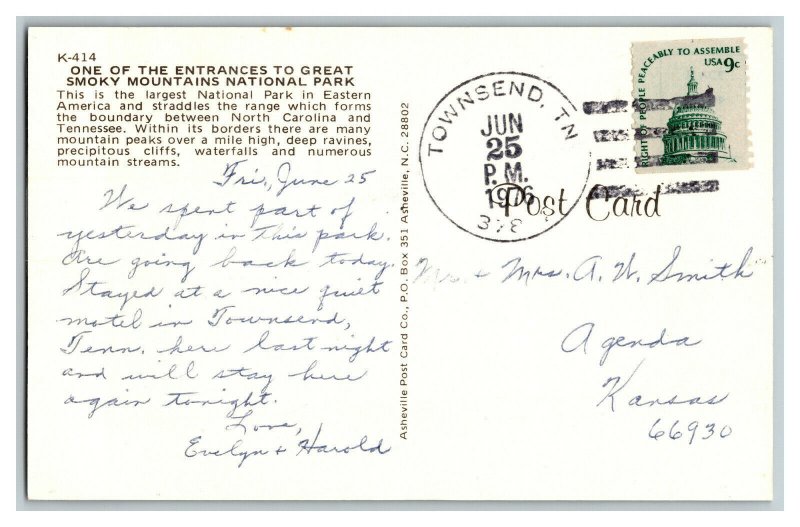 K-414
ONE OF THE ENTRANCES TO GREAT
SMOKY MOUNTAINS NATIONAL PARK
This is the largest National Park in Eastern
America and straddles the range which forms
the boundary between North Carolina and
Tennessee. Within its borders there are many
mountain peaks over a mile high, deep ravines,
precipitous cliffs, waterfalls and numerous
mountain streams.
Fri, June 25
We spent part of
yesterday in this park.
Are going back today.
Stayed at a nice quiet
motel in Townsend,
Tenn. here last night
and will stay here
again tonight.
Love,
Evelyn + Harold
Asheville Post Card Co., P.O. Box 351 Asheville, N.C. 28802
TOWNSEND, TN
JUN
25
P.M.
1976
378
RIGHT OF PEOPLE PEACEABLY TO ASSEMBLE
USA 9c
Post Card
Mr. + Mrs. A. W. Smith
Agenda
Kansas
66930